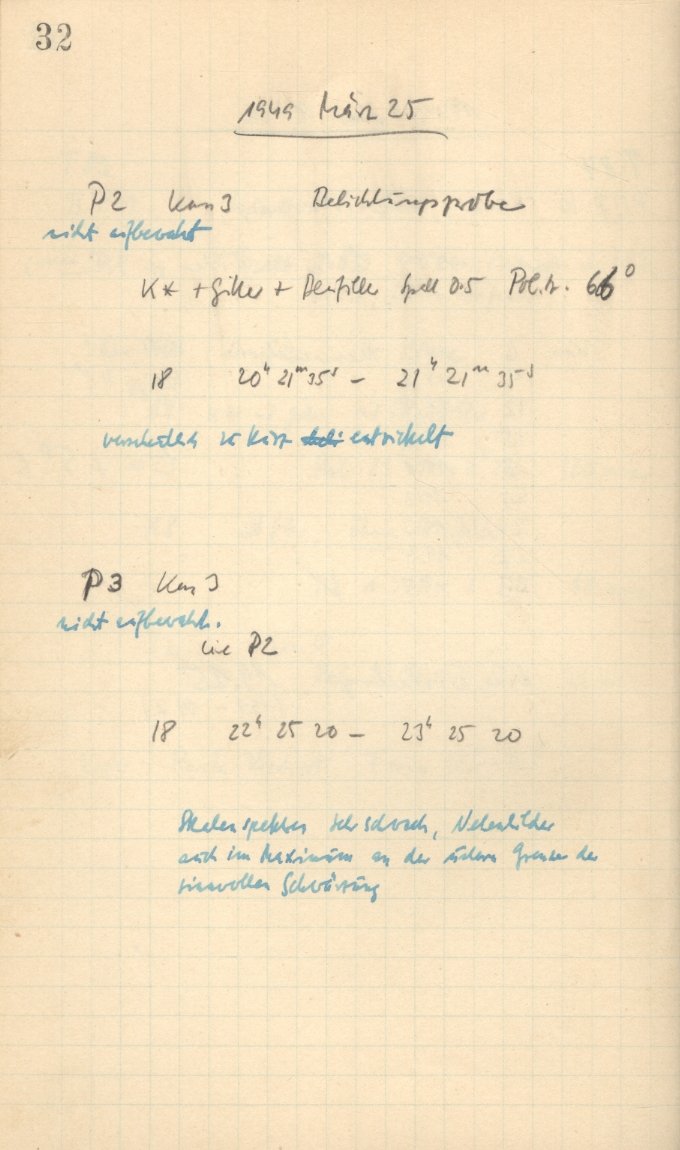 32
1949 März 25
P2 Kam 3 Belichtungsprobe
nicht aufbewahrt
K* + Gitter + Blaufilter Spalt 0.5 Pol. 66°
18 20h 21m 35s – 21h 21m 35s
versehentlich zu kurz entwickelt
P3 Kam 3
nicht aufbewahrt.
wie P2
18 22h 25 20 – 23h 25 20
Skalenspektren sehr schwach, Nebenbilder
auch im Maximum an der untern Grenze der
sinnvollen Schwärzung